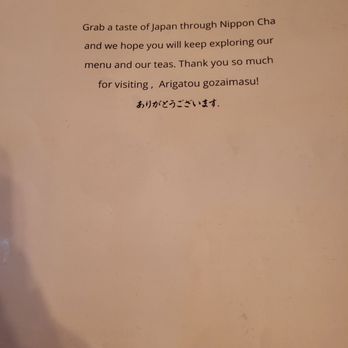 Grab a taste of Japan through Nippon Cha
and we hope you will keep exploring our
menu and our teas. Thank you so much
for visiting , Arigatou gozaimasu!
ありがとうございます.